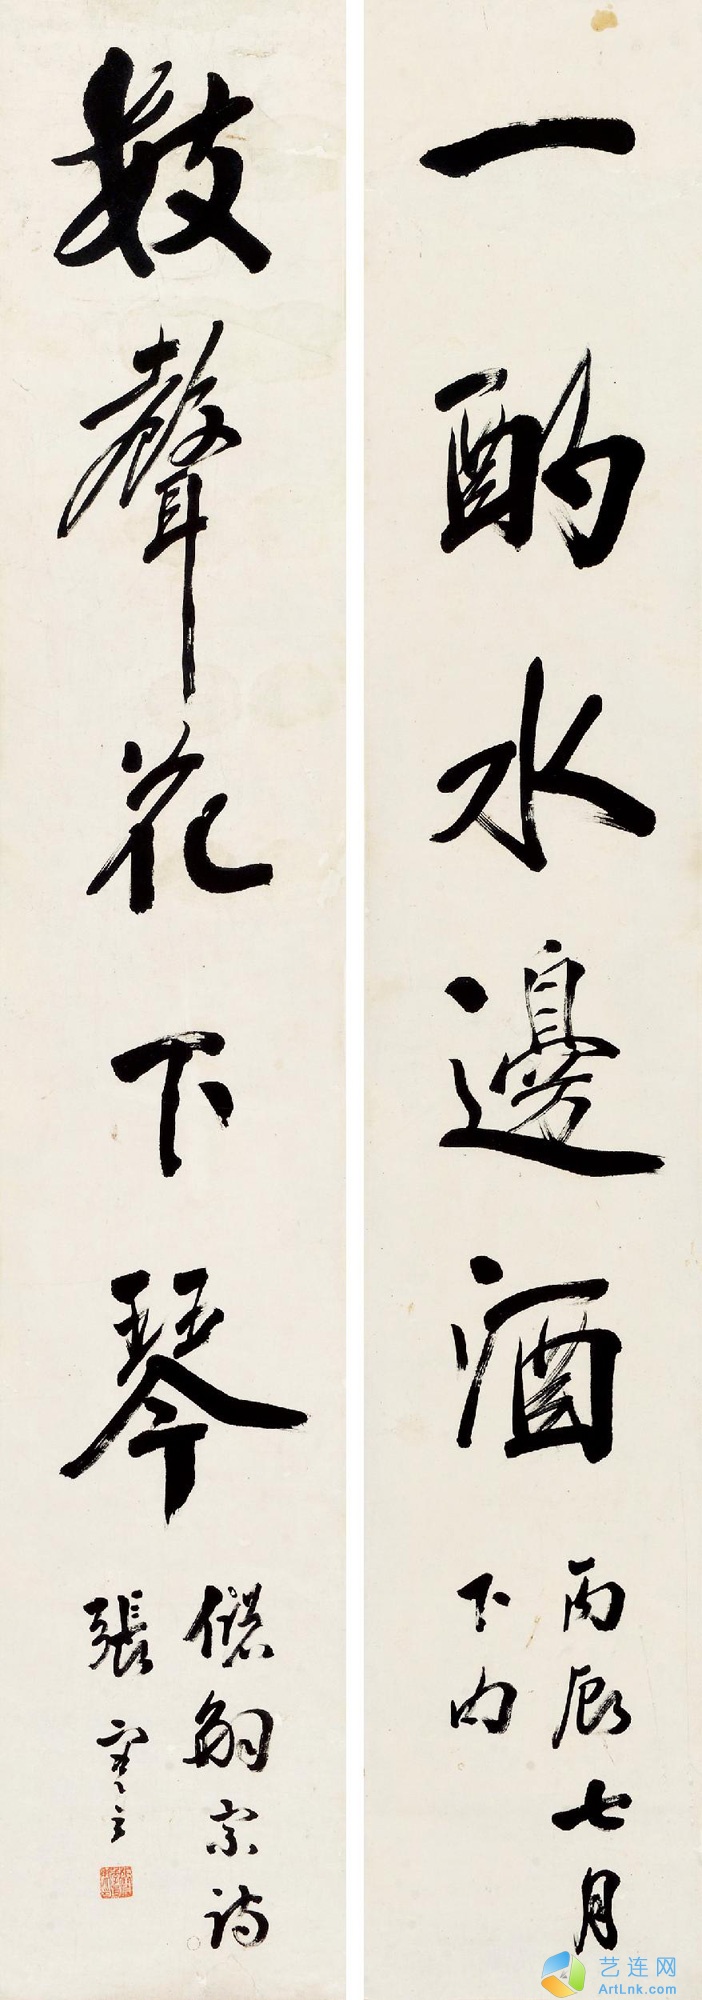 一酌水邊酒
丙辰七月
下旬
數聲花下琴
儲嗣宗詩
張謇
艺连网
ArtLnk.com